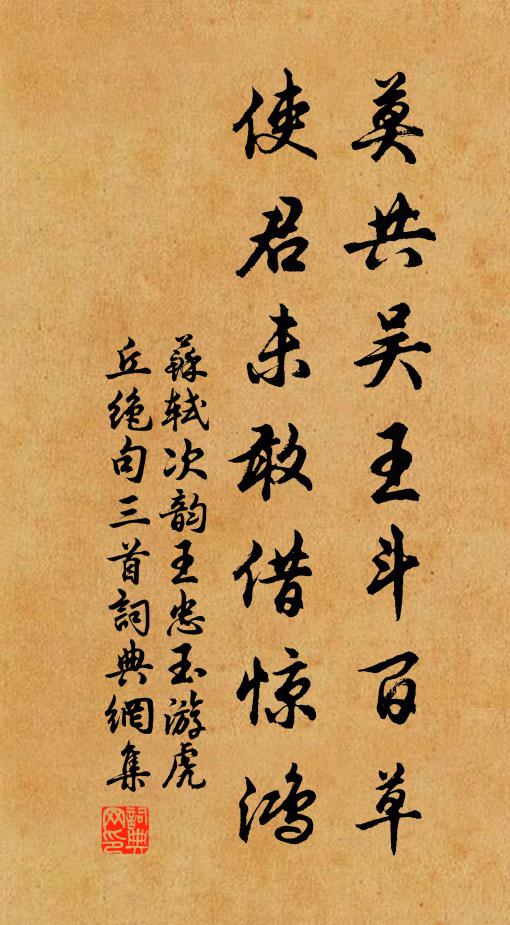 莫共吴王斗百草
使君未敢借惊鸿
蘇轼次韵王忠玉游虎
丘绝句三首詞典網集
詞典
网印